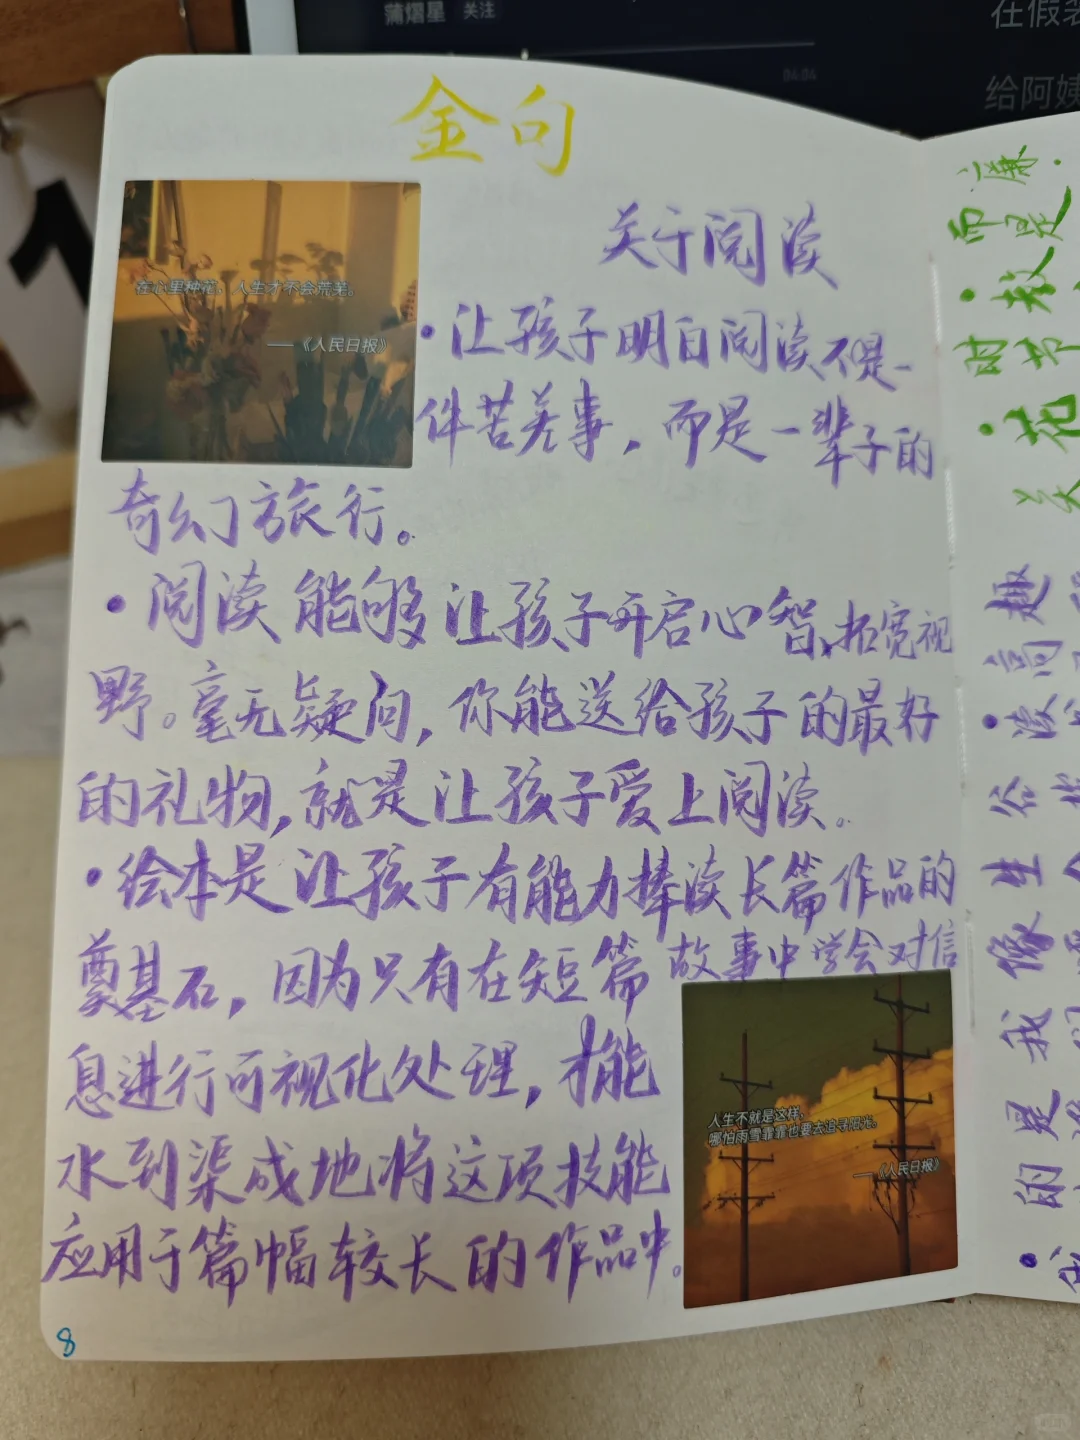 蒲熠星 关注
04:04
在假装
给阿姨
金句
在心里种花，人生才不会荒芜。
——《人民日报》
关于阅读
·让孩子明白阅读不是一
件苦差事，而是一辈子的
奇幻旅行。
·阅读能够让孩子开启心智、拓宽视
野。毫无疑问，你能送给孩子的最好
的礼物，就是让孩子爱上阅读。
·绘本是让孩子有能力捧读长篇作品的
奠基石，因为只有在短篇故事中学会对信
息进行可视化处理，才能
水到渠成地将这项技能
应用于篇幅较长的作品中。
人生不就是这样，
哪怕雨雪霏霏也要去追寻阳光。
——《人民日报》
8
而是
·教
时节
·花
关
·我的是我像生